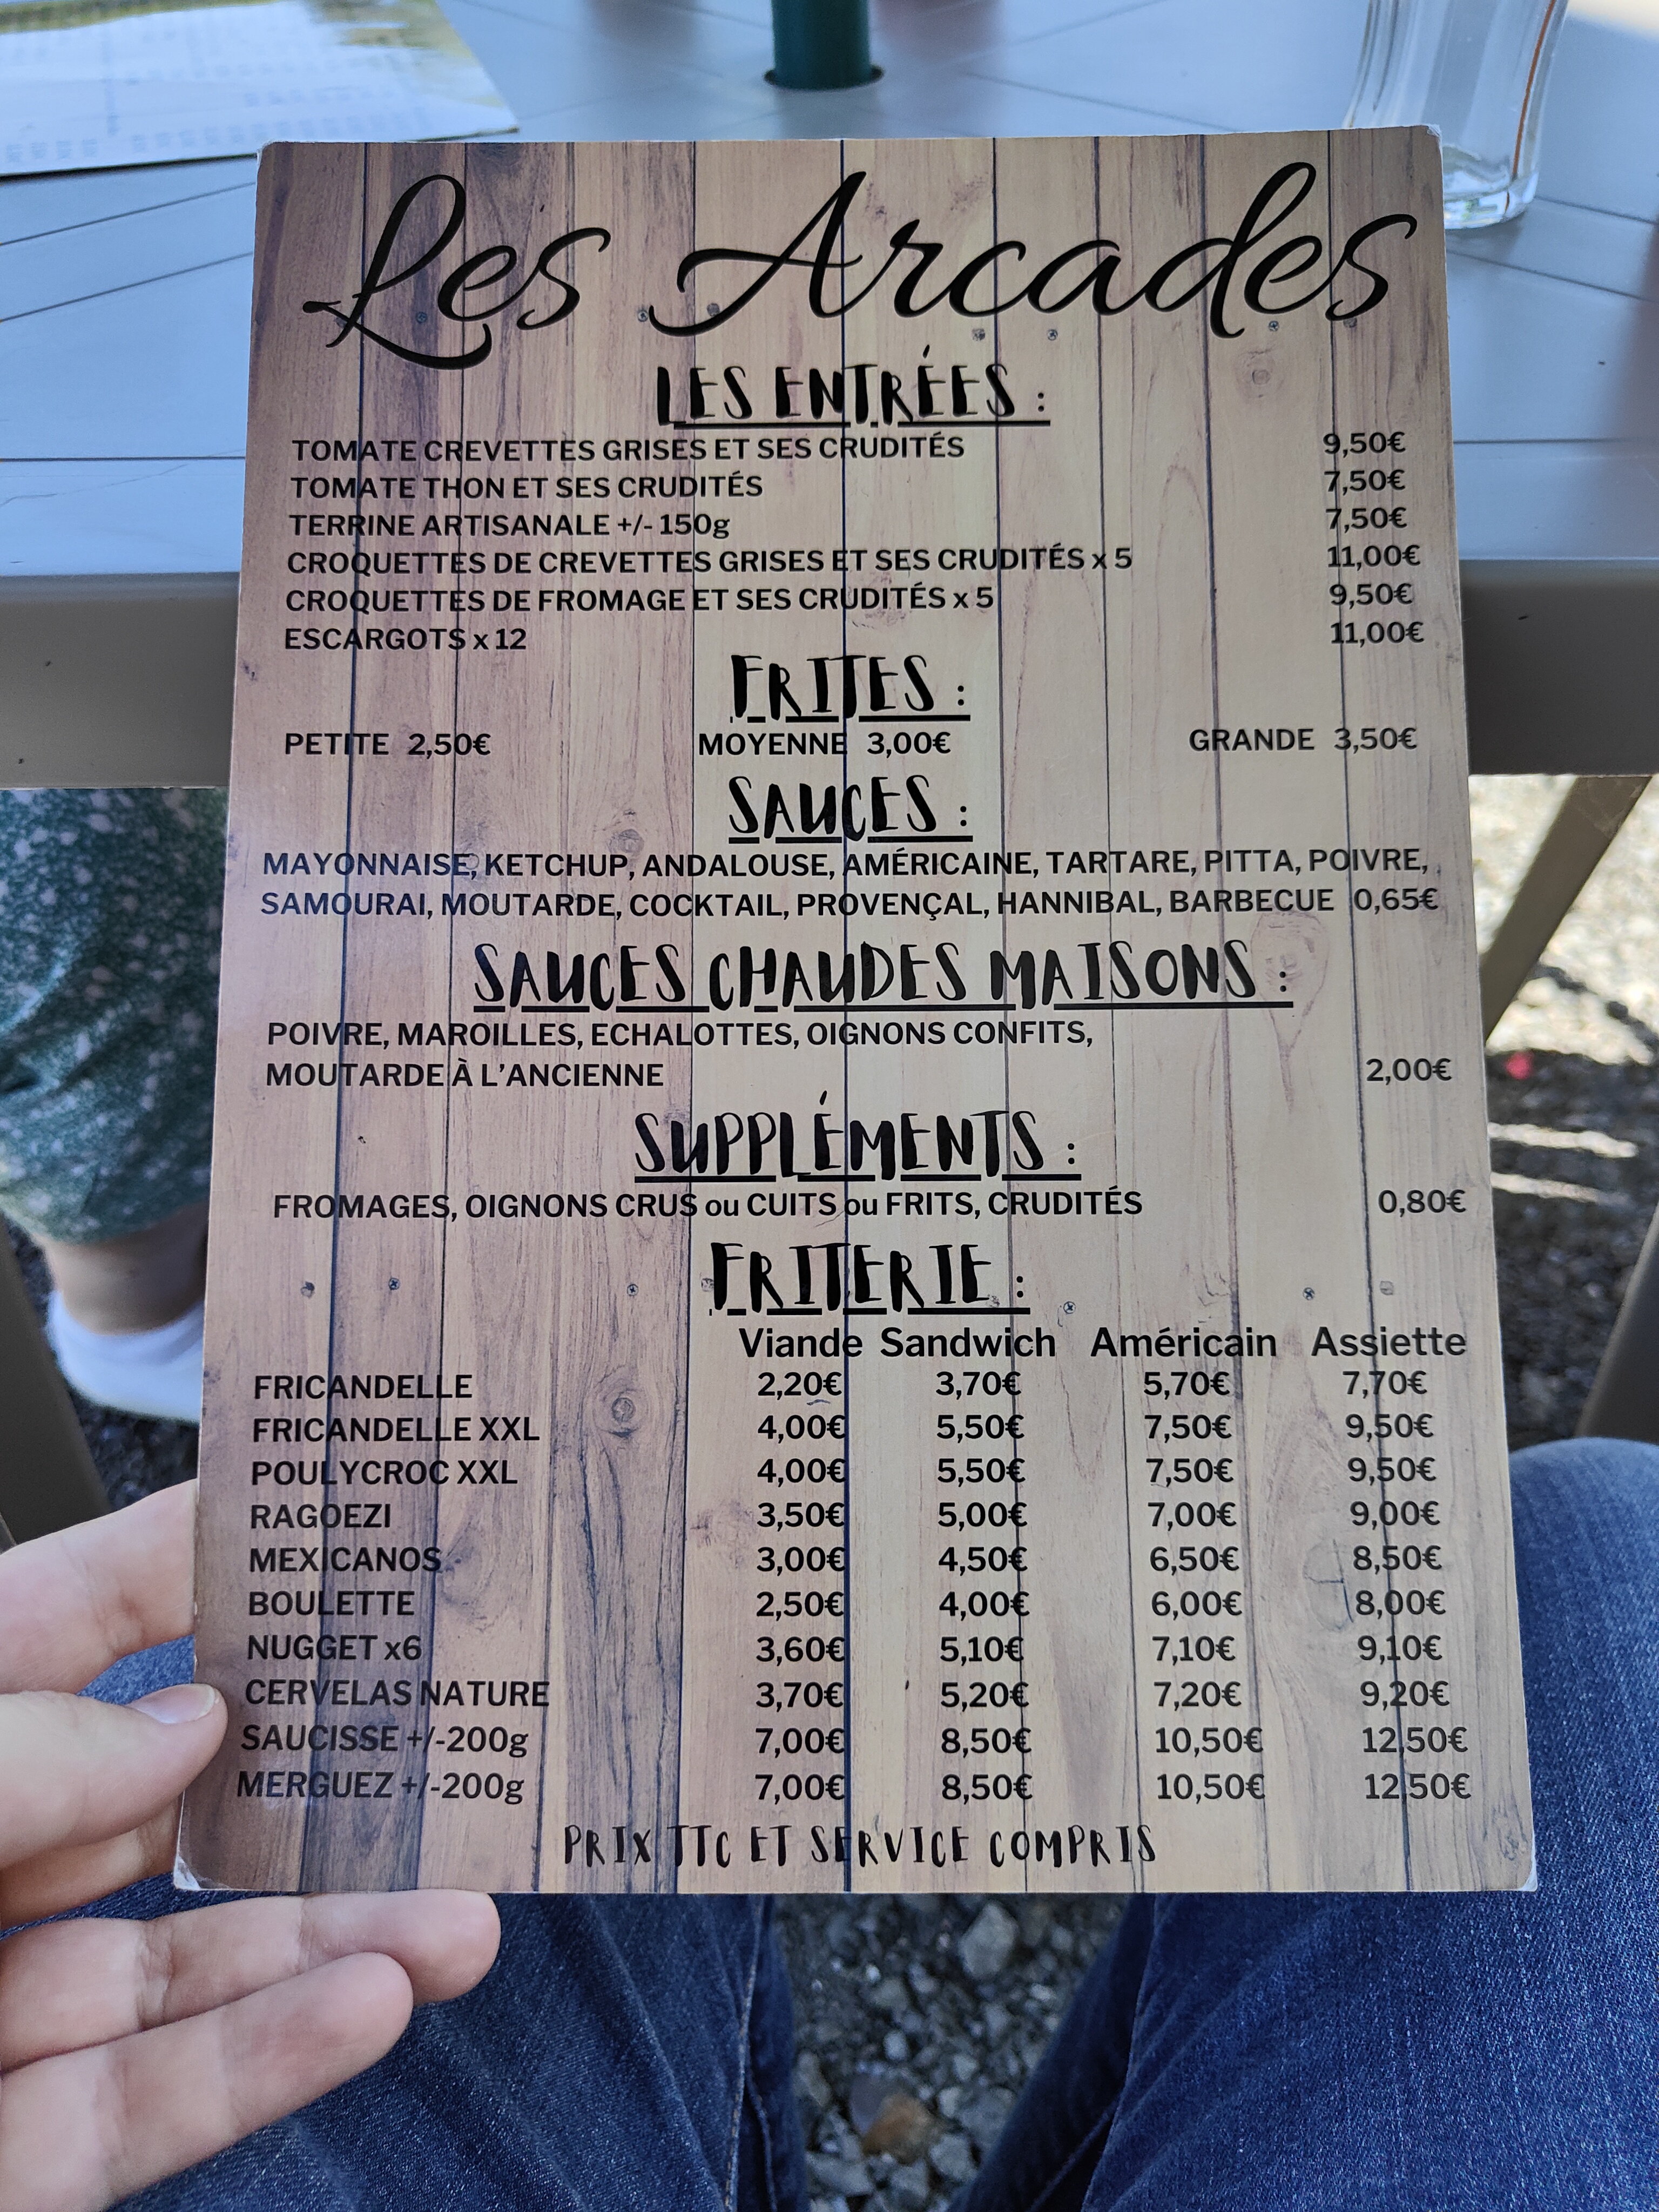 Les Arcades
LES ENTRÉES :
TOMATE CREVETTES GRISES ET SES CRUDITÉS 9,50€
TOMATE THON ET SES CRUDITÉS 7,50€
TERRINE ARTISANALE +/- 150g 7,50€
CROQUETTES DE CREVETTES GRISES ET SES CRUDITÉS x 5 11,00€
CROQUETTES DE FROMAGE ET SES CRUDITÉS x 5 9,50€
ESCARGOTS x 12 11,00€
FRITES :
PETITE 2,50€ MOYENNE 3,00€ GRANDE 3,50€
SAUCES :
MAYONNAISE, KETCHUP, ANDALOUSE, AMÉRICAINE, TARTARE, PITTA, POIVRE,
SAMOURAI, MOUTARDE, COCKTAIL, PROVENÇAL, HANNIBAL, BARBECUE 0,65€
SAUCES CHAUDES MAISONS :
POIVRE, MAROILLES, ECHALOTTES, OIGNONS CONFITS,
MOUTARDE À L'ANCIENNE 2,00€
SUPPLÉMENTS :
FROMAGES, OIGNONS CRUS ou CUITS ou FRITS, CRUDITÉS 0,80€
FRITERIE :
Viande Sandwich Américain Assiette
FRICANDELLE 2,20€ 3,70€ 5,70€ 7,70€
FRICANDELLE XXL 4,00€ 5,50€ 7,50€ 9,50€
POULYCROC XXL 4,00€ 5,50€ 7,50€ 9,50€
RAGOEZI 3,50€ 5,00€ 7,00€ 9,00€
MEXICANOS 3,00€ 4,50€ 6,50€ 8,50€
BOULETTE 2,50€ 4,00€ 6,00€ 8,00€
NUGGET x6 3,60€ 5,10€ 7,10€ 9,10€
CERVELAS NATURE 3,70€ 5,20€ 7,20€ 9,20€
SAUCISSE +/-200g 7,00€ 8,50€ 10,50€ 12,50€
MERGUEZ +/-200g 7,00€ 8,50€ 10,50€ 12,50€
PRIX TTC ET SERVICE COMPRIS